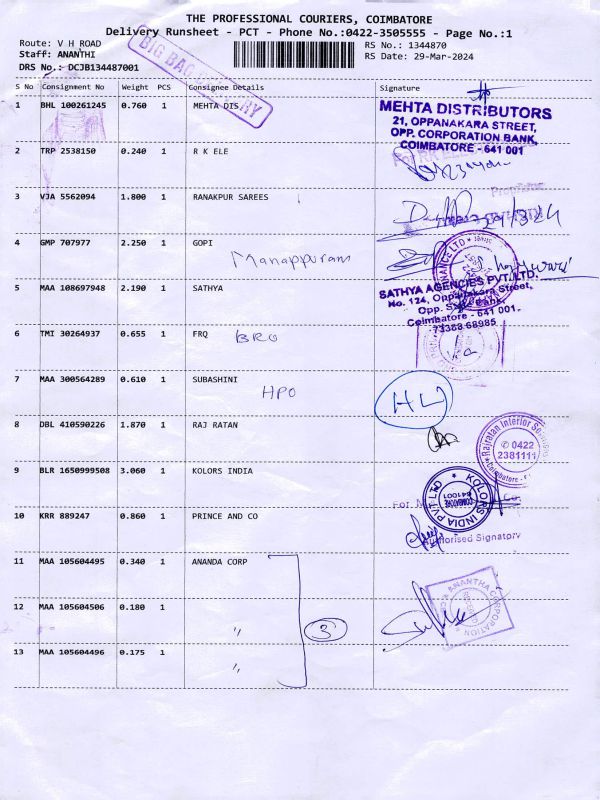 THE PROFESSIONAL COURIERS, COIMBATORE
Delivery Runsheet - PCT - Phone No.:0422-3505555 - Page No.:1
Route: V H ROAD
RS No.: 1344870
Staff: ANANTHI
RS Date: 29-Mar-2024
DRS No.: DCJB134487001
BIG BAG
S No Consignment No Weight PCS Consignee Details Signature
1 BHL 100261245 0.760 1 MEHTA DIS
MEHTA DISTRIBUTORS
21, OPPANAKARA STREET,
OPP. CORPORATION BANK,
COIMBATORE - 641 001
2 TRP 2538150 0.240 1 R K ELE
3 VJA 5562094 1.800 1 RANAKPUR SAREES
4 GMP 707977 2.250 1 GOPI
Manappuram
5 MAA 108697948 2.190 1 SATHYA
SATHYA AGENCIES PVT. LTD.
No. 124, Oppanakara Street,
Opp. State Bank,
Coimbatore - 641 001.
73388 68985
6 TMI 30264937 0.655 1 FRQ
BRO
7 MAA 300564289 0.610 1 SUBASHINI
HPO
8 DBL 410590226 1.870 1 RAJ RATAN
Rajratan Interior
✆ 0422
2381111
Coimbatore
9 BLR 1650999508 3.060 1 KOLORS INDIA
KOLORS INDIA PVT LTD
COIMBATORE
641001
10 KRR 889247 0.860 1 PRINCE AND CO
For
Authorised Signatory
11 MAA 105604495 0.340 1 ANANDA CORP
12 MAA 105604506 0.180 1 〃
3
ANANTHA CORPORATION
13 MAA 105604496 0.175 1 〃